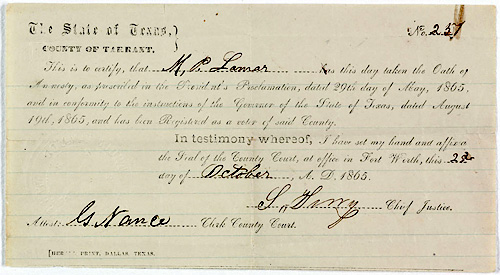 The State of Texas,
COUNTY OF TARRANT.
No. 257
This is to certify, that M. B. Lamar has this day taken the Oath of
Amnesty, as presented in the President's Proclamation, dated 29th day of May, 1865,
and in conformity to the instructions of the Governor of the State of Texas, dated August
19th, 1865, and has been Registered as a voter of said County.
In testimony whereof, I have set my hand and affixed
the Seal of the County Court, at office in Fort Worth, this
day of October, A. D. 1865.
Chief Justice.
Attest: G Nance Clerk County Court.
PRINT, DALLAS, TEXAS.